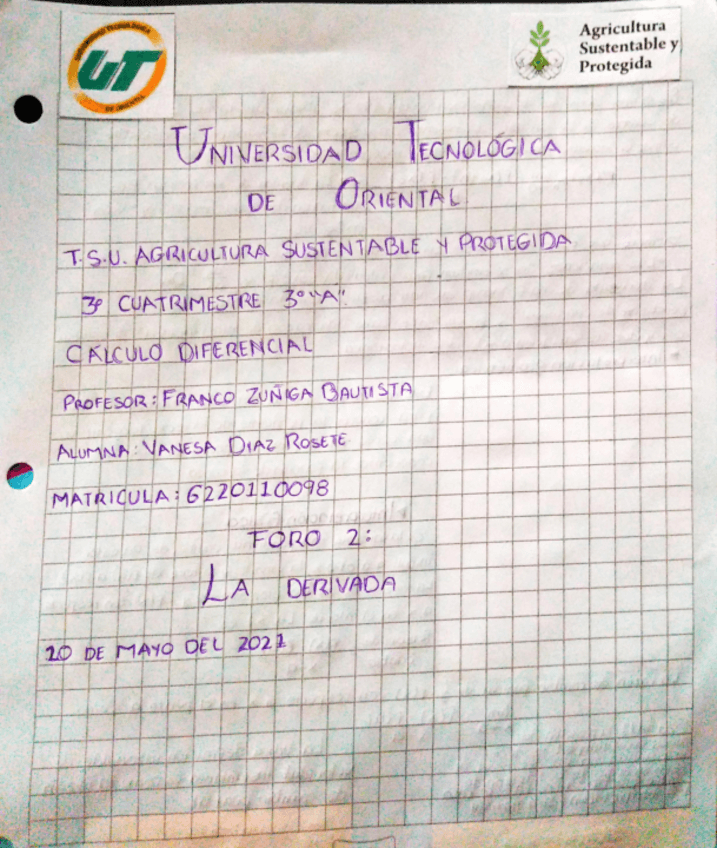 UT
Agricultura
Sustentable y
Protegida
UNIVERSIDAD TECNOLÓGICA
DE ORIENTAL
T.S.U. AGRICULTURA SUSTENTABLE Y PROTEGIDA
3º CUATRIMESTRE 3º "A".
CÁLCULO DIFERENCIAL
PROFESOR: FRANCO ZUÑIGA BAUTISTA
ALUMNA: VANESA DIAZ ROSETE
MATRICULA: 6220110098
FORO 2:
LA DERIVADA
20 DE MAYO DEL 2021